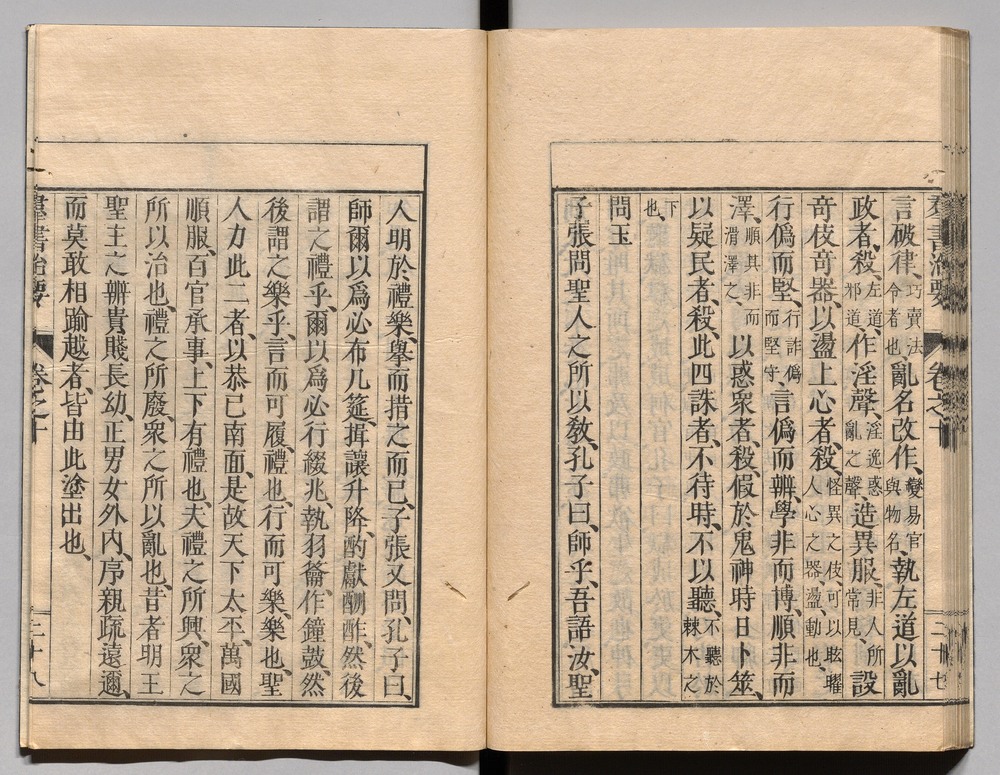 羣書治要 卷之十 二十七
言破律、巧賣法令者也、亂名改作、變易官與物名、執左道以亂
政者、殺、左道、邪道、作淫聲、淫逸惑亂之聲、造異服、非人所常見、設
奇伎奇器、以盪上心者、殺、怪異之伎可以眩曜人心之器、盪、動也、
行僞而堅、行詐僞而堅守、言僞而辨、學非而博、順非而
澤、順其非而滑澤之、以惑衆者、殺、假於鬼神時日卜筮、
以疑民者、殺、此四誅者、不待時、不以聽、不聽於棘木之
下也、
問玉
子張問聖人之所以敎、孔子曰、師乎、吾語汝、聖
人明於禮樂、擧而措之而已、子張又問、孔子曰、
師爾以爲必布几筵、揖讓升降、酌獻酬酢、然後
謂之禮乎、爾以爲必行綴兆、執羽籥、作鐘鼓、然
後謂之樂乎、言而可履、禮也、行而可樂、樂也、聖
人力此二者、以恭己南面、是故天下太平、萬國
順服、百官承事、上下有禮也、夫禮之所興、衆之
所以治也、禮之所廢、衆之所以亂也、昔者明王
聖主之辨貴賤長幼、正男女外內、序親疏遠邇、
而莫敢相踰越者、皆由此塗出也、
羣書治要 卷之十 二十八